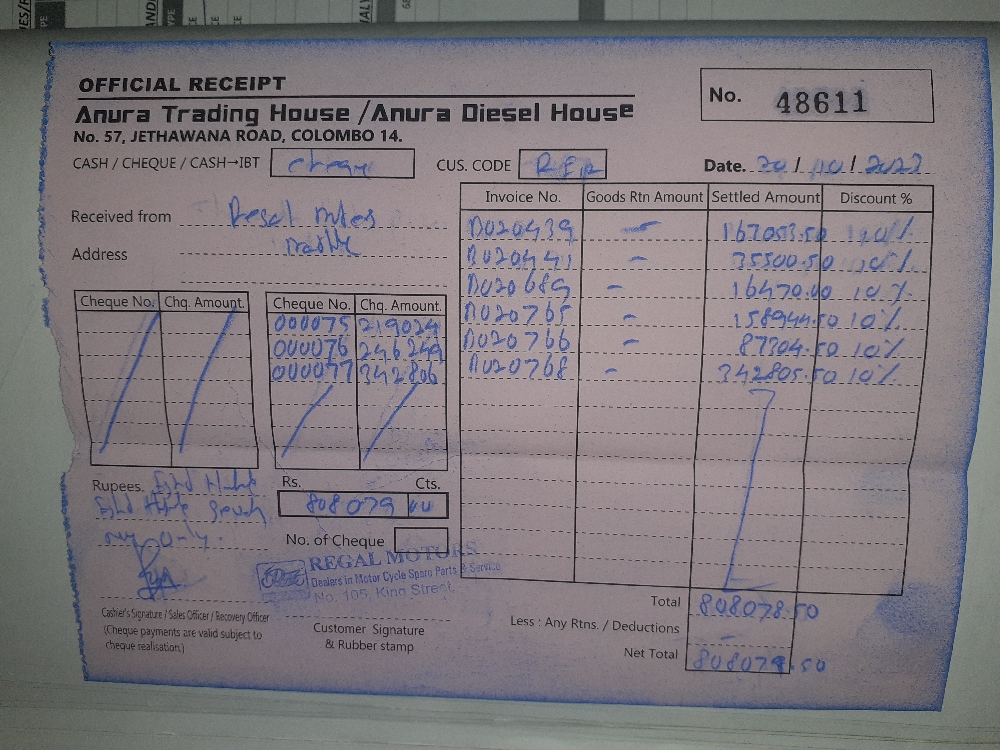 OFFICIAL RECEIPT
Anura Trading House / Anura Diesel House
No. 57, JETHAWANA ROAD, COLOMBO 14.
No. 48611
CASH / CHEQUE / CASH→IBT cheque
CUS. CODE
Date. 20 / 10 / 2022
Received from
Address
Invoice No. Goods Rtn Amount Settled Amount Discount %
020439 – 167053.50 10%
020441 – 35500.50 10%
020689 – 16470.00 10%
020765 – 158944.50 10%
020766 – 87304.50 10%
020768 – 342805.50 10%
Cheque No. Chq. Amount. Cheque No. Chq. Amount.
000075 219024
000076 246249
000077 342806
Rupees.
only.
Rs. Cts.
808079 00
No. of Cheque
REGAL MOTORS
Dealers in Motor Cycle Spare Parts & Service
No. 105, King Street,
Cashier's Signature / Sales Officer / Recovery Officer
(Cheque payments are valid subject to
cheque realisation.)
Customer Signature
& Rubber stamp
Total 808078.50
Less : Any Rtns. / Deductions –
Net Total 808078.50